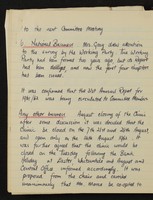 to the next Committee Meeting
6. National Earnings Mr. Gray drew attention
to the survey by the Working Party. The Working
Party had been formed two years ago but no report
had been and now the first four chapters
has been issued.
It was confirmed that the 31st Annual Report for
1961/62 was being circulated to Committee Members
Any other business August closing of the Clinic
after some discussion it was decided that the
Clinic be closed on the 7th 21st and 28th August
and open only on the 14th August 1962. It
was further agreed that the clinic would be
closed on the Tuesday following the Bank
Holiday at Easter, Whitsuntide and August and
Central Office informed accordingly. It was
proposed from the chair and carried
unanimously that Mr. Morris be co-opted to